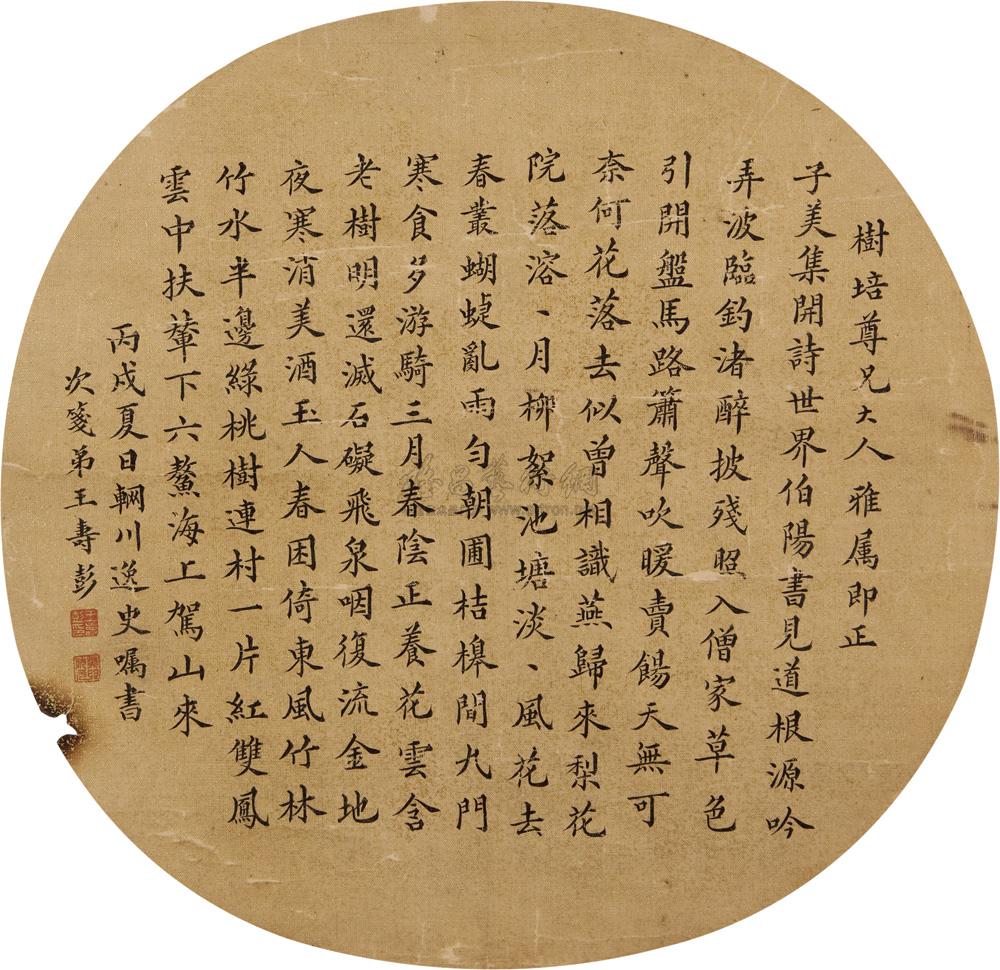 樹培尊兄大人 雅属即正
子美集開詩世界伯陽書見道根源吟
弄波臨釣渚醉披殘照入僧家草色
引開盤馬路簫聲吹暖賣餳天無可
奈何花落去似曾相識燕歸來梨花
院落溶、月柳絮池塘淡、風花去
春叢蝴蜨亂雨勻朝圃桔橰間九門
寒食多游騎三月春陰正養花雲含
老樹明還滅石礙飛泉咽復流金地
夜寒消美酒玉人春困倚東風竹林
竹水半邊綠桃樹連村一片紅雙鳳
雲中扶輦下六鰲海上駕山來
丙戌夏日輞川逸史嘱書
次箋弟王壽彭